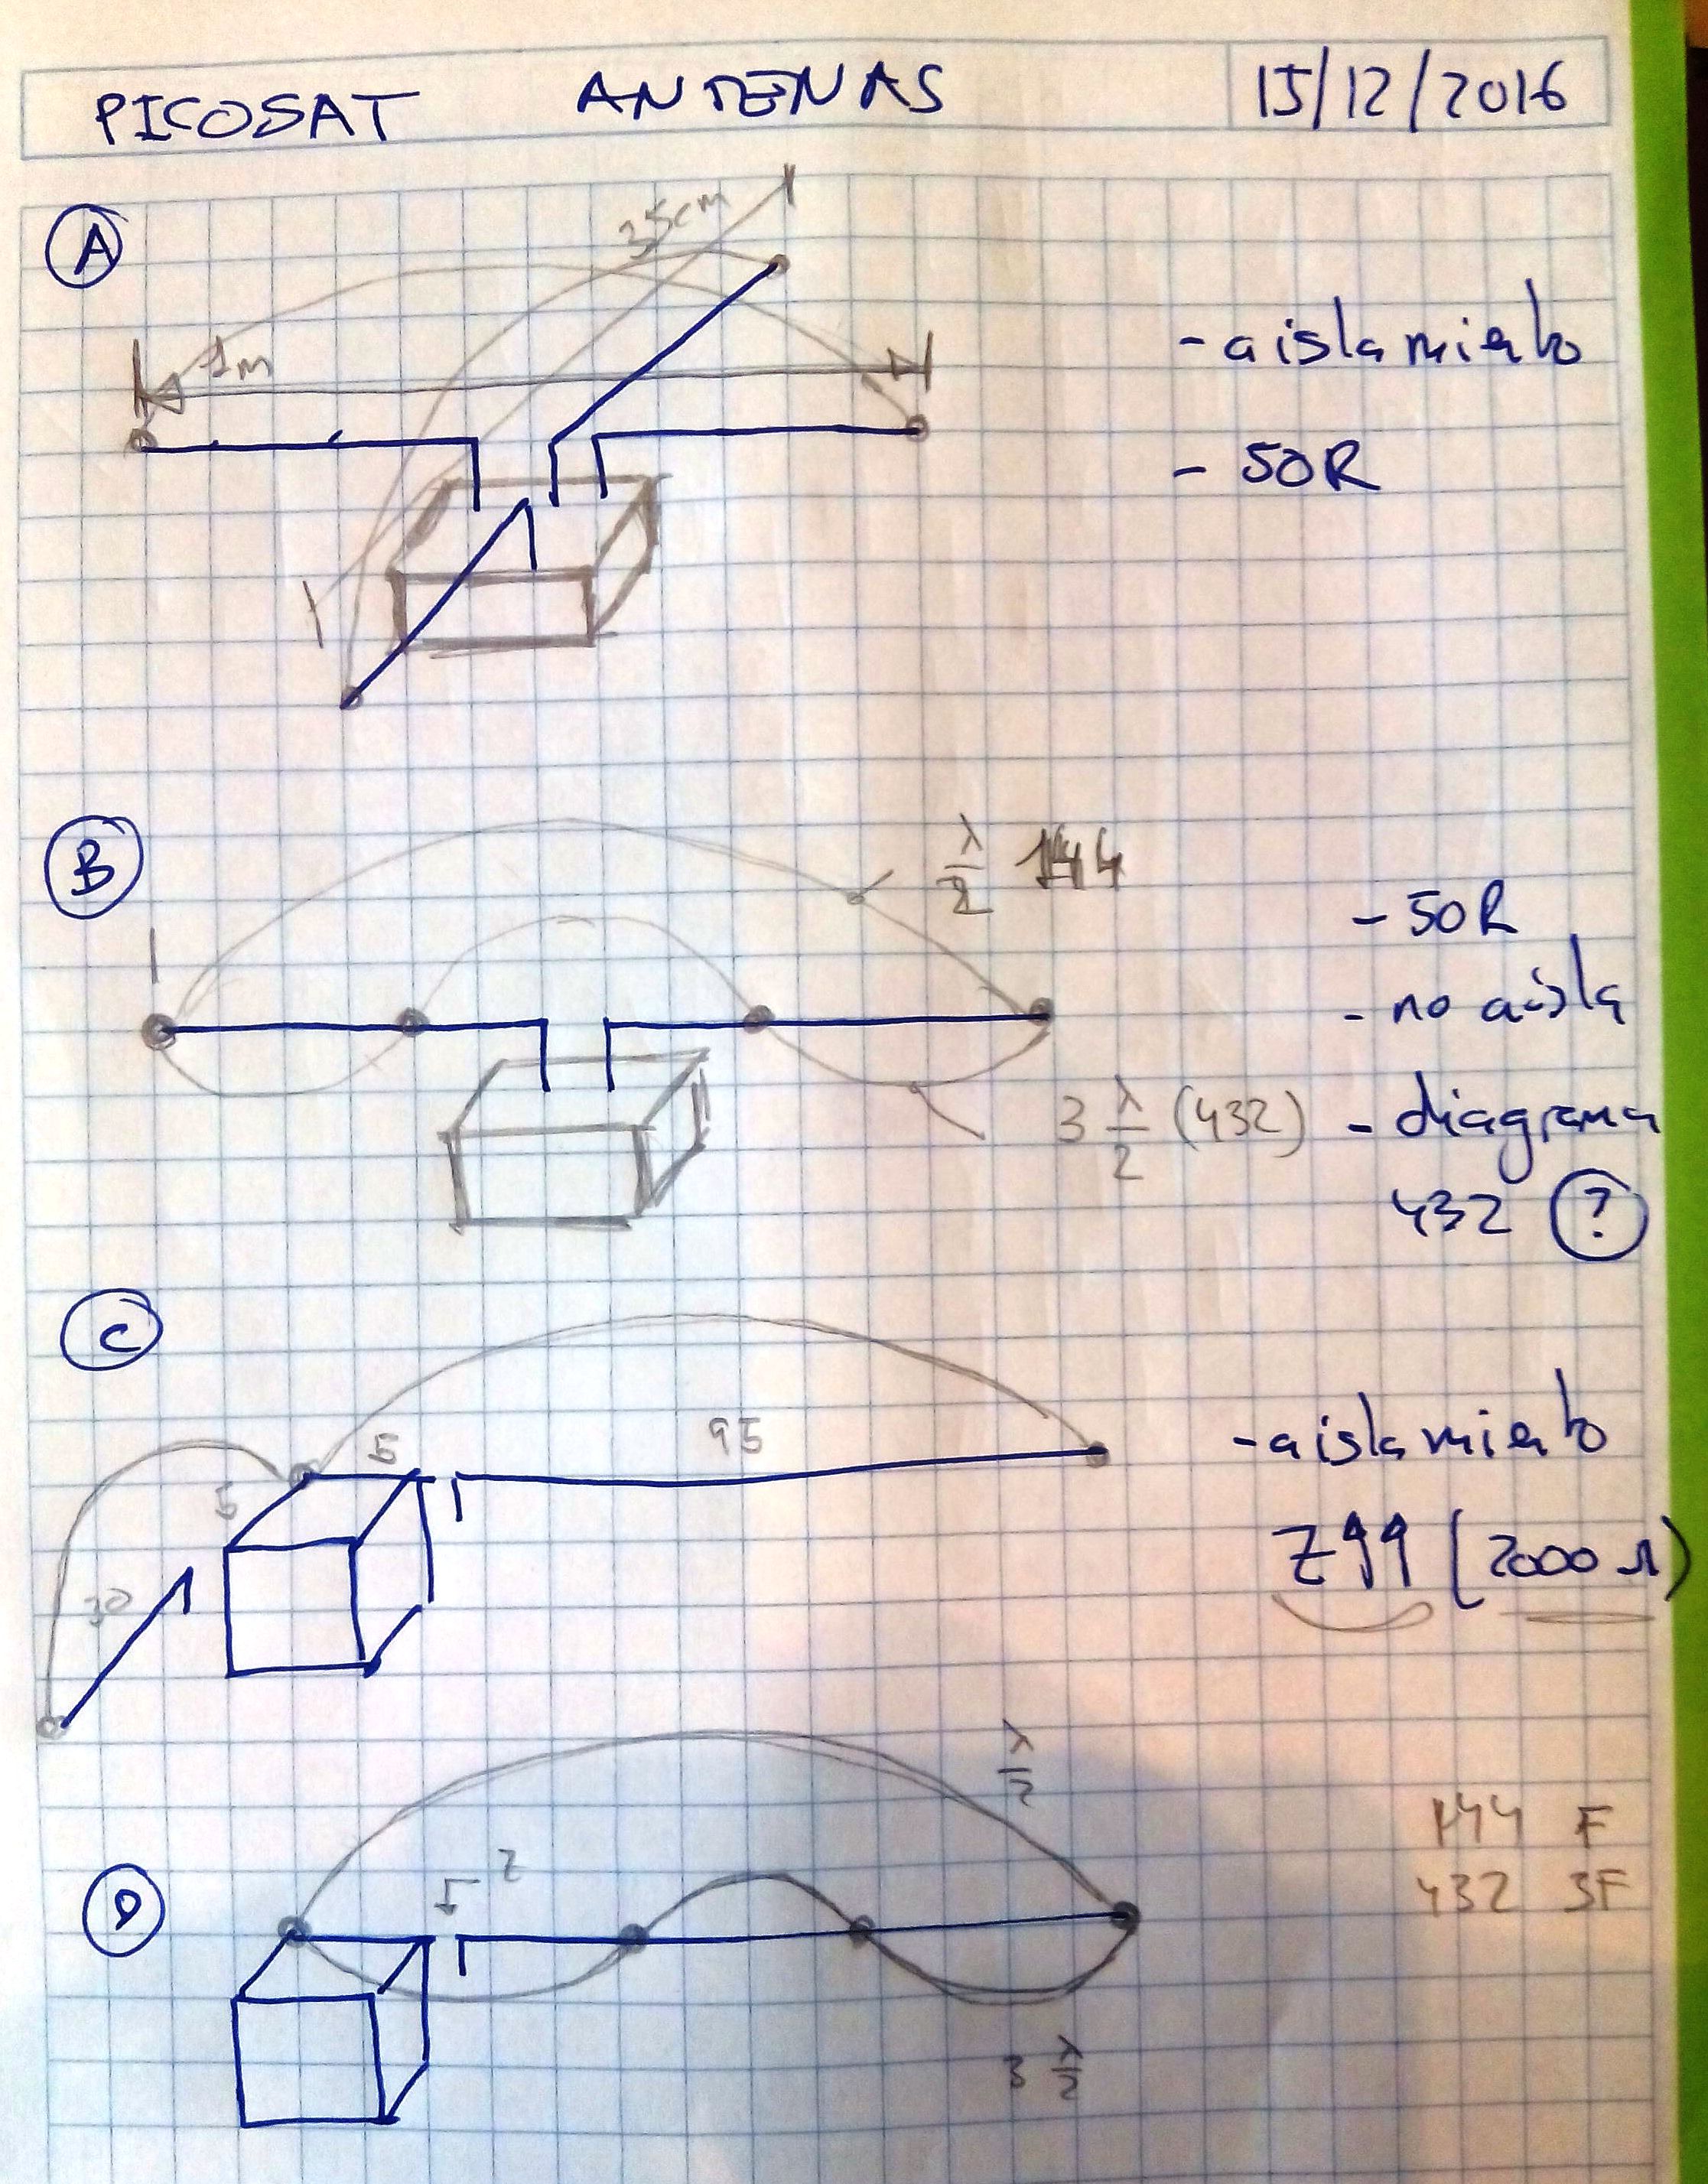 PICOSAT ANTENAS 15/12/2016
A
35cm
1m
- aislamiento
- 50R
B
λ/2 144
- 50R
- no aisla
3 λ/2 (432)
- diagrama
432 ?
C
5 95
5
30
- aislamiento
Z↑↑ (2000 Ω)
D
λ/2
144 F
432 3F
5
3 λ/2